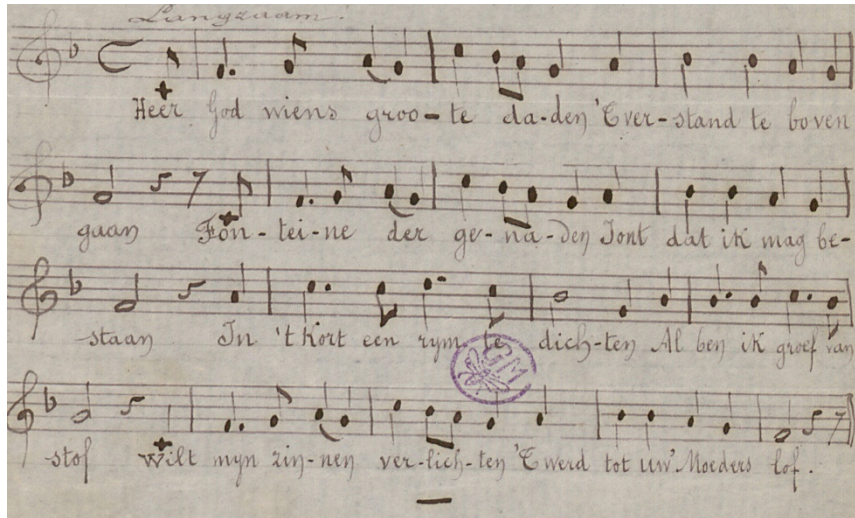 Langzaam.
Heer God wiens groo-te da-den 'T ver-stand te boven
gaan Fon-tei-ne der ge-na-den Jont dat ik mag be-
-staan In 't kort een rym te dich-ten Al ben ik groef van
GM
stof Wilt myn zin-nen ver-lich-ten 'T werd tot uw' Moeders lof.